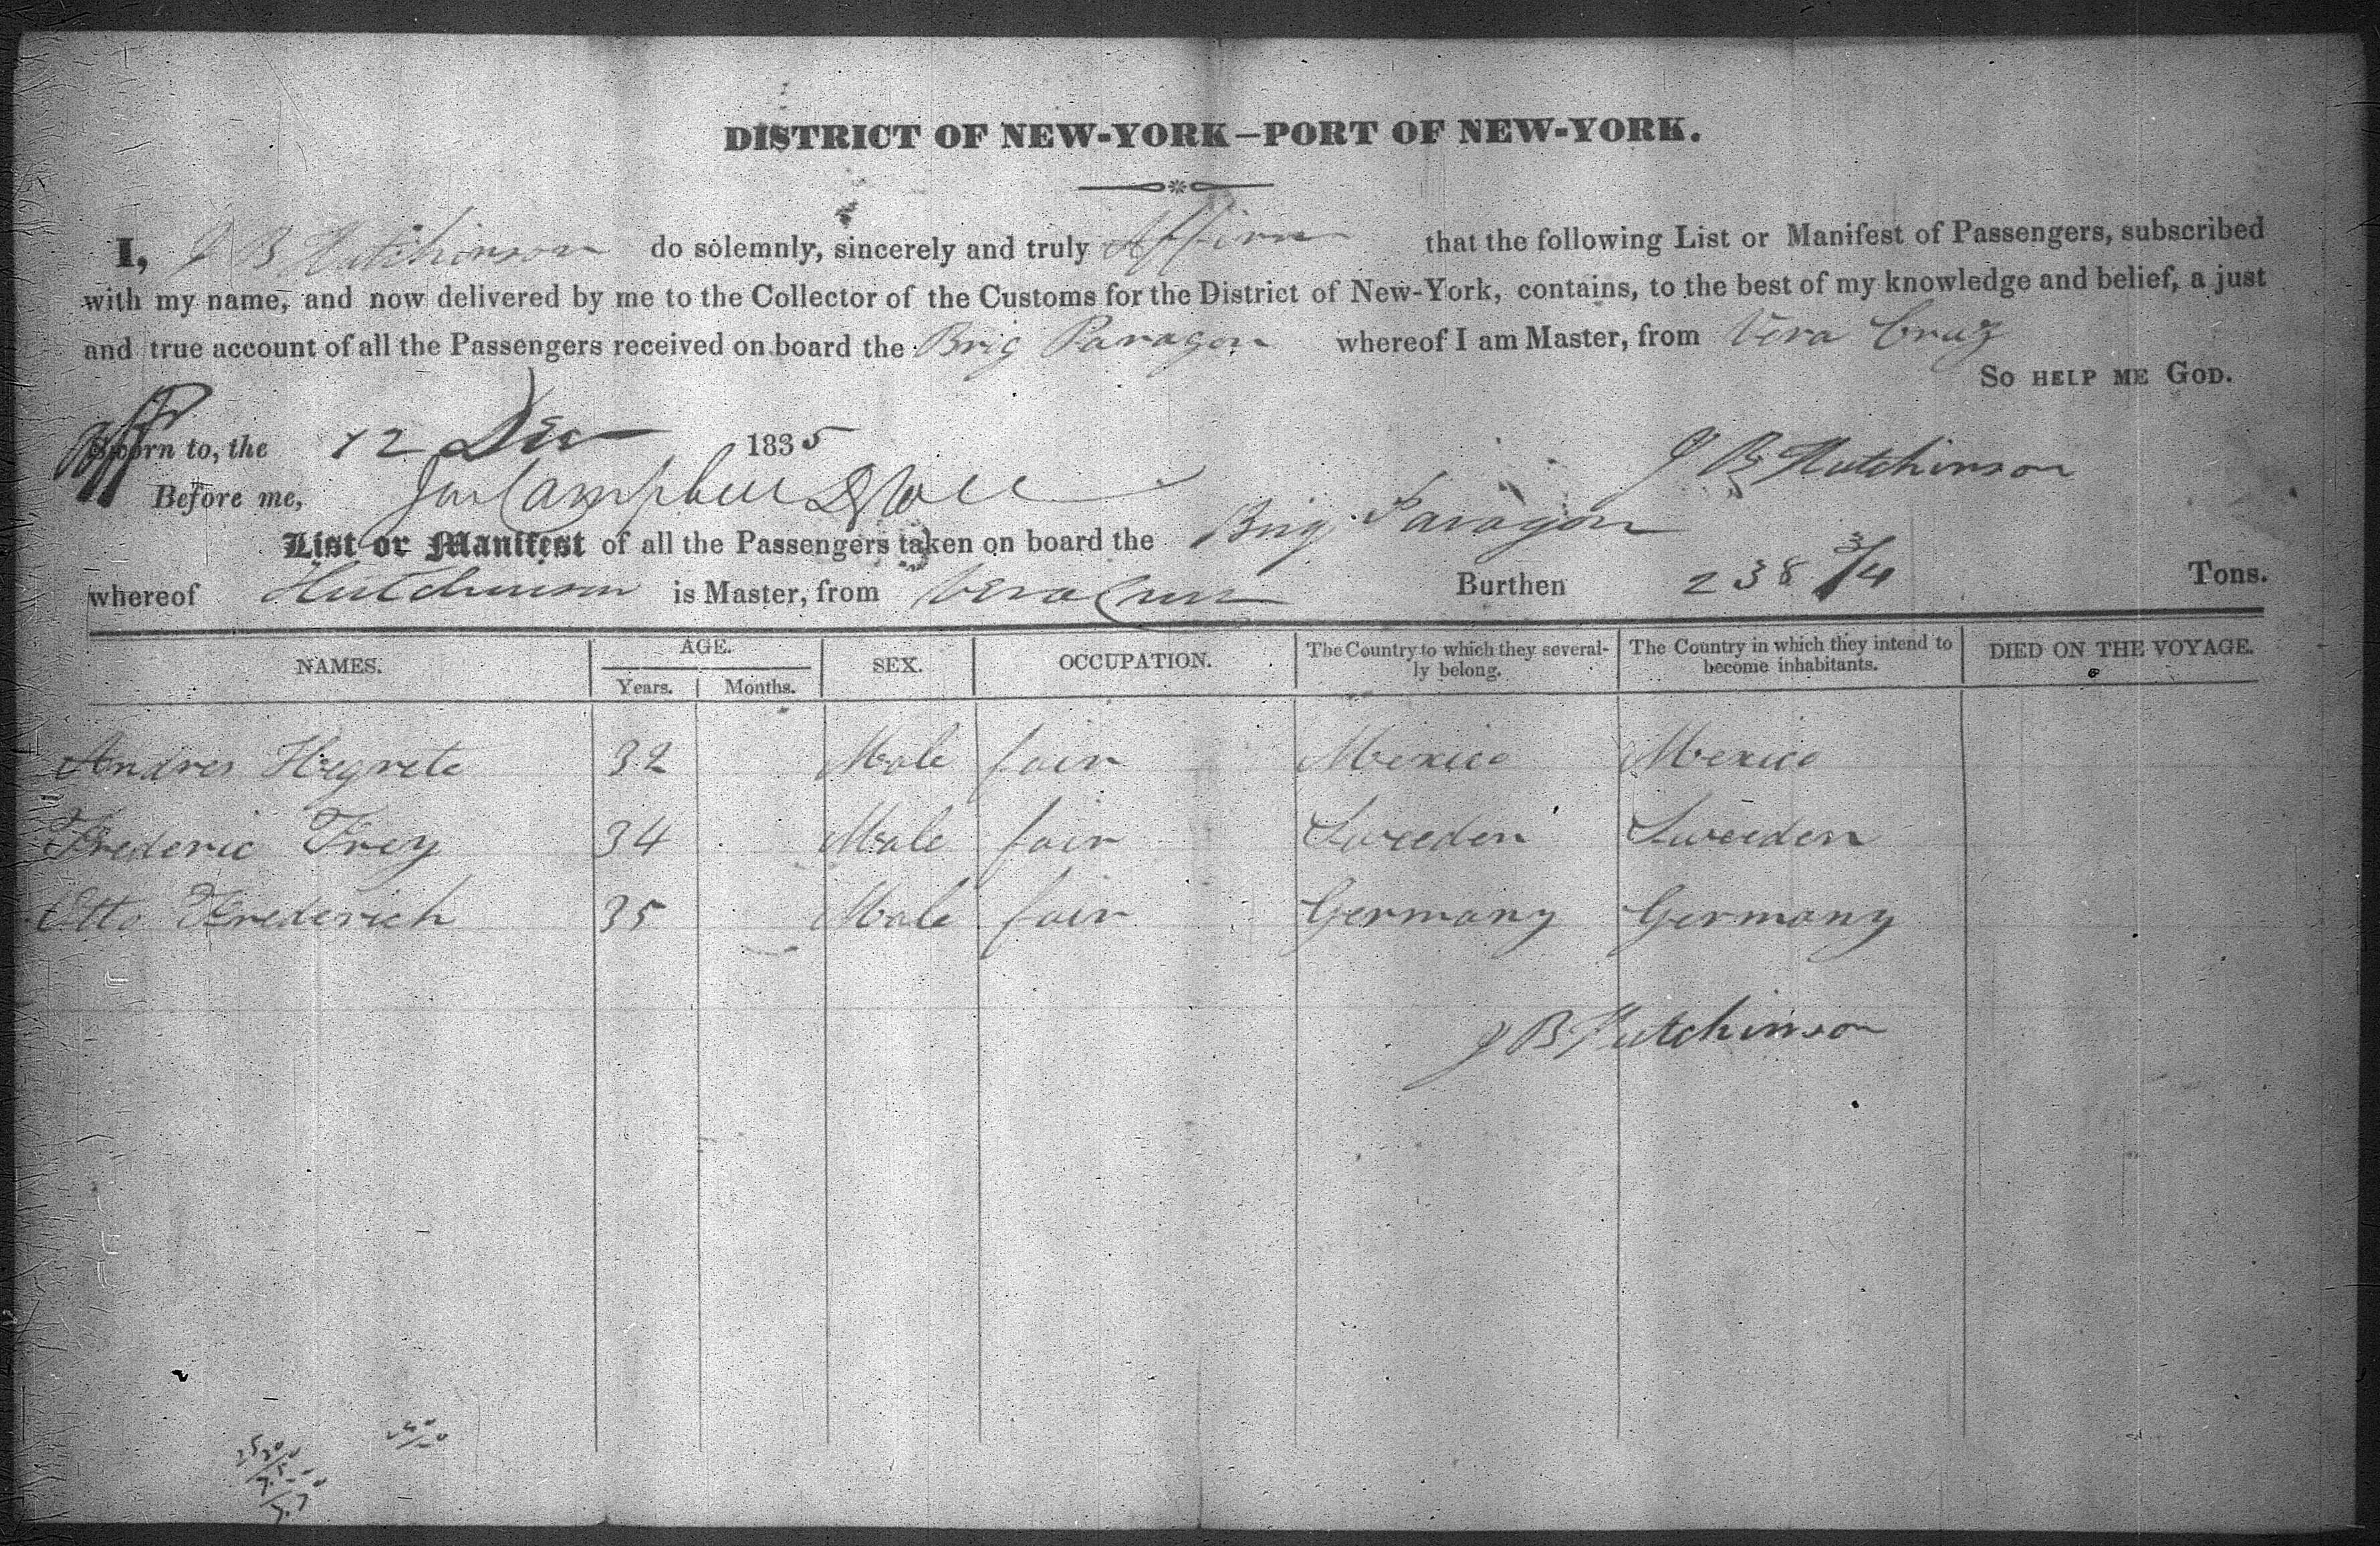 DISTRICT OF NEW-YORK—PORT OF NEW-YORK.
I, J B Hutchinson do solemnly, sincerely and truly Affirm that the following List or Manifest of Passengers, subscribed
with my name, and now delivered by me to the Collector of the Customs for the District of New-York, contains, to the best of my knowledge and belief, a just
and true account of all the Passengers received on board the Brig Paragon whereof I am Master, from Vera Cruz
So help me God.
Aff Sworn to, the 12 Dec 1835
J B Hutchinson
Before me, Campbell
List or Manifest of all the Passengers taken on board the Brig Paragon
whereof Hutchinson is Master, from Vera Cruz Burthen 238 3/4 Tons.
NAMES. AGE. SEX. OCCUPATION. The Country to which they several- The Country in which they intend to DIED ON THE VOYAGE.
Years. Months. ly belong. become inhabitants.
Andres Negrete 32 Male fair Mexico Mexico
Frederic Frey 34 Male fair Sweeden Sweeden
Otto Frederich 35 Male fair Germany Germany
J B Hutchinson